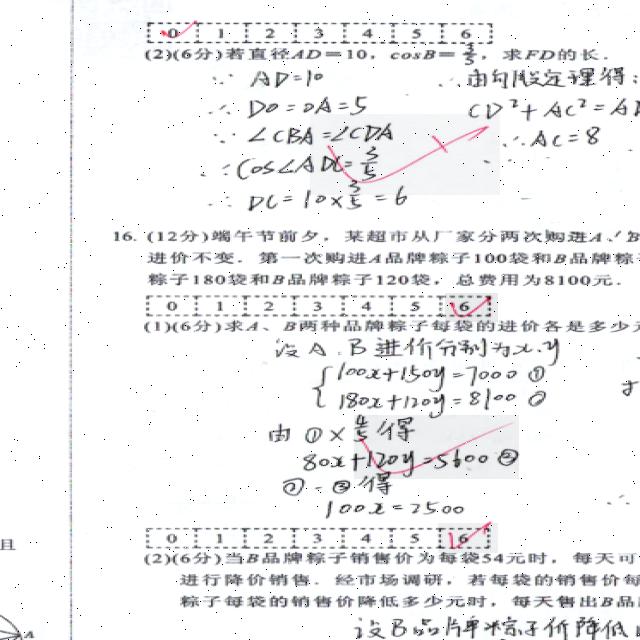 0 1 2 3 4 5 6
(2)(6分)若直径AD=10，cosB=3/5，求FD的长.
∵ AD=10 ∴由勾股定理得:
∴ DO=OA=5 CD²+AC²=A
∵ ∠CBA=∠CDA ∴AC=8
∴cos∠ADC=3/5
∴ DC=10×3/5=6
16. (12分)端午节前夕，某超市从厂家分两次购进A、
进价不变．第一次购进A品牌粽子100袋和B品牌粽
粽子180袋和B品牌粽子120袋，总费用为8100元.
0 1 2 3 4 5 6
(1)(6分)求A、B两种品牌粽子每袋的进价各是多少
设A.B进价分别为x.y
100x+150y=7000 ①
180x+120y=8100 ②
由①×4/5得
80x+120y=5600 ③
②-③得
100x=2500
0 1 2 3 4 5 6
(2)(6分)当B品牌粽子销售价为每袋54元时，每天可
进行降价销售．经市场调研，若每袋的销售价每
且
粽子每袋的销售价降低多少元时，每天售出B品
A
设B品牌粽子价降低